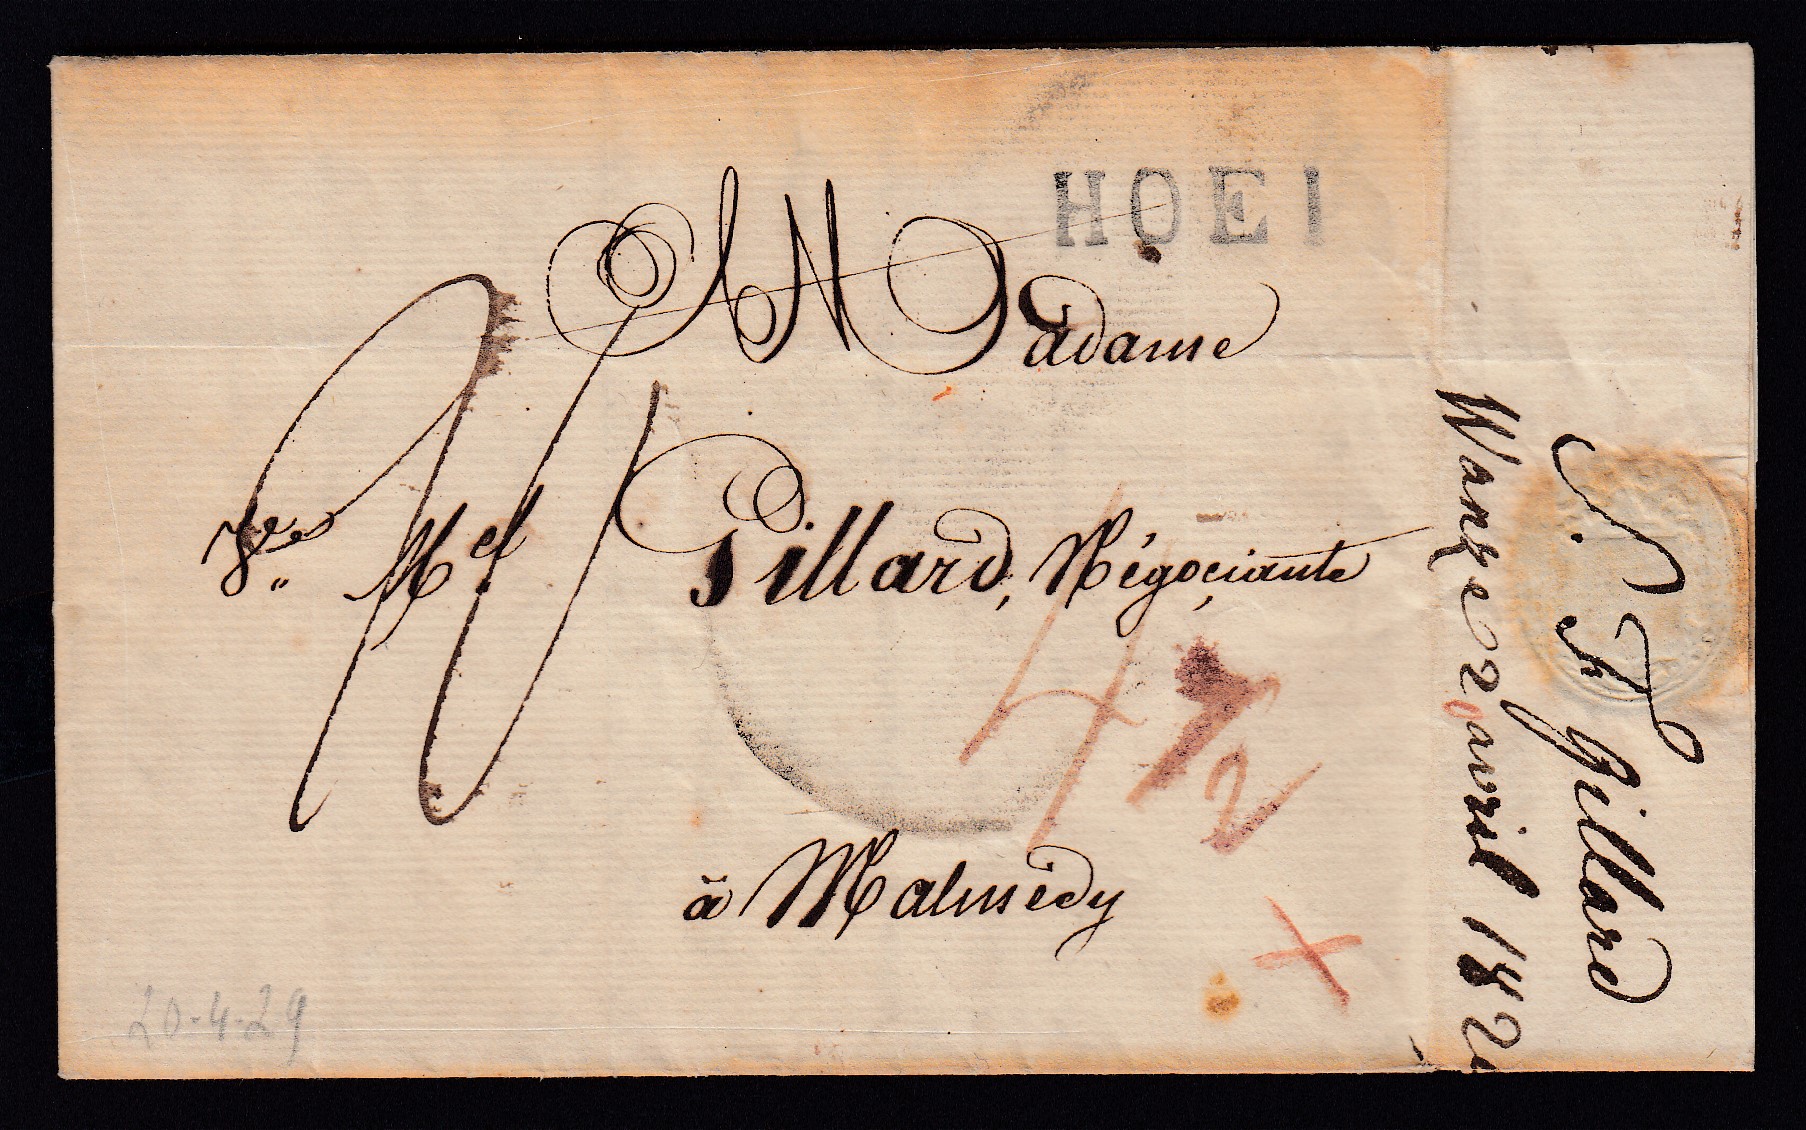 HOEI
A Madame
Ve. Mel Gillard, Négociante
4 1/2
à Malmédy
20-4-29
Wanze 20 avril 182
Gillard